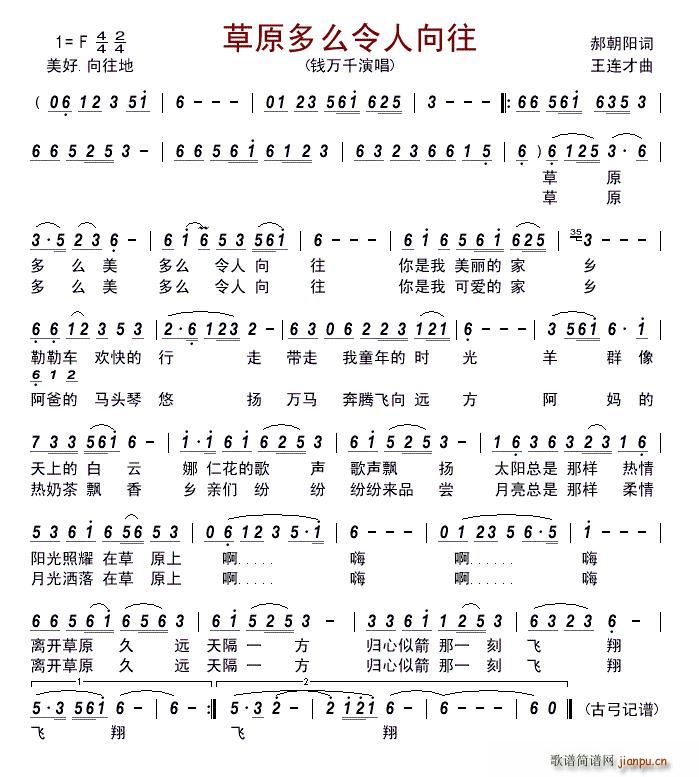 草原多么令人向往
1= F 4/4 2/4
郝朝阳词
美好.向往地
(钱万千演唱)
王连才曲
( 06 123 51 | 6 - - - | 01 23 561 625 | 3 - - - |: 66 561 635 3 |
6 6 5 2 5 3 - | 6 6 5 6 1 6 1 2 3 | 6 3 2 3 6 6 1 5 | 6 ) 6 125 3 · 6 |
草 原
草 原
3 · 5 2 3 6 - | 6 1 6 5 3 561 | 6 - - - | 6 1 6 5 6 1 625 | 35 3 - - - |
多 么 美 多么 令人 向 往 你是我 美丽的 家 乡
多 么 美 多么 令人 向 往 你是我 可爱的 家 乡
6 6 12 3 5 3 | 2·6 123 6 - | 3 5 6 3 2 3 121 | 6 - - - | 3 561 6 · 1 |
勒勒车 欢快的 行 走 带走 我童年的 时 光 羊 群像
6 1 2
阿爸的 马头琴 悠 扬 万马 奔腾飞向 远 方 阿 妈的
7 3 3 561 6 - | 1·1 6 1 6 2 5 3 | 6 1 5 6 3 - | 1 6 3 6 3 2 3 1 6 |
天上的 白 云 娜 仁花的歌 声 歌声飘 扬 太阳总是 那样 热情
热奶茶 飘 香 乡 亲们 纷 纷 纷纷来品 尝 月亮总是 那样 柔情
5 3 6 1 6 56 5 3 | 0 6 1 2 3 5·1 | 6 - - - | 0 1 2 3 5 6·5 | 1 - - - |
阳光照耀 在草 原上 啊...... 嗨 啊...... 嗨
月光洒落 在草 原上 啊...... 嗨 啊...... 嗨
6 6 5 6 1 6 5 6 3 | 6 6 1 5 2 5 3 | 3 3 6 1 2 3 1 6 5 | 6 3 2 3 6 - |
离开草原 久 远 天隔 一 方 归心似箭 那一 刻 飞 翔
离开草原 久 远 天隔 一 方 归心似箭 那一 刻 飞 翔
1 2
5·3 561 6 - | 6 - 6 - :| 5·3 2 - | 2·121 6 - | 6 - - - | 6 0 || (古弓记谱)
飞 翔 飞 翔
歌谱简谱网
jianpu.cn